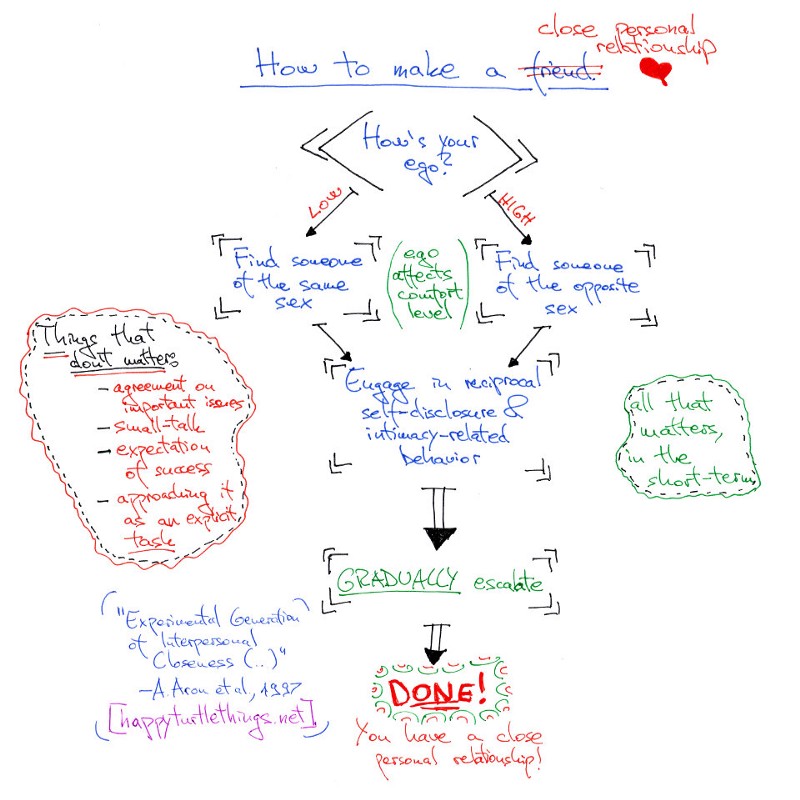 close personal
relationship
How to make a friend.
How's your
ego?
LOW
HIGH
Find someone
of the same
sex
(ego
affects
comfort
level)
Find someone
of the opposite
sex
Things that
don't matter:
- agreement on
important issues
- small-talk
- expectation
of success
- approaching it
as an explicit
task
Engage in reciprocal
self-disclosure &
intimacy-related
behavior
all that
matters,
in the
short-term
GRADUALLY escalate
("Experimental Generation
of Interpersonal
Closeness (..)"
- A. Aron et al, 1997
[happyturtlethings.net])
DONE!
You have a close
personal relationship!